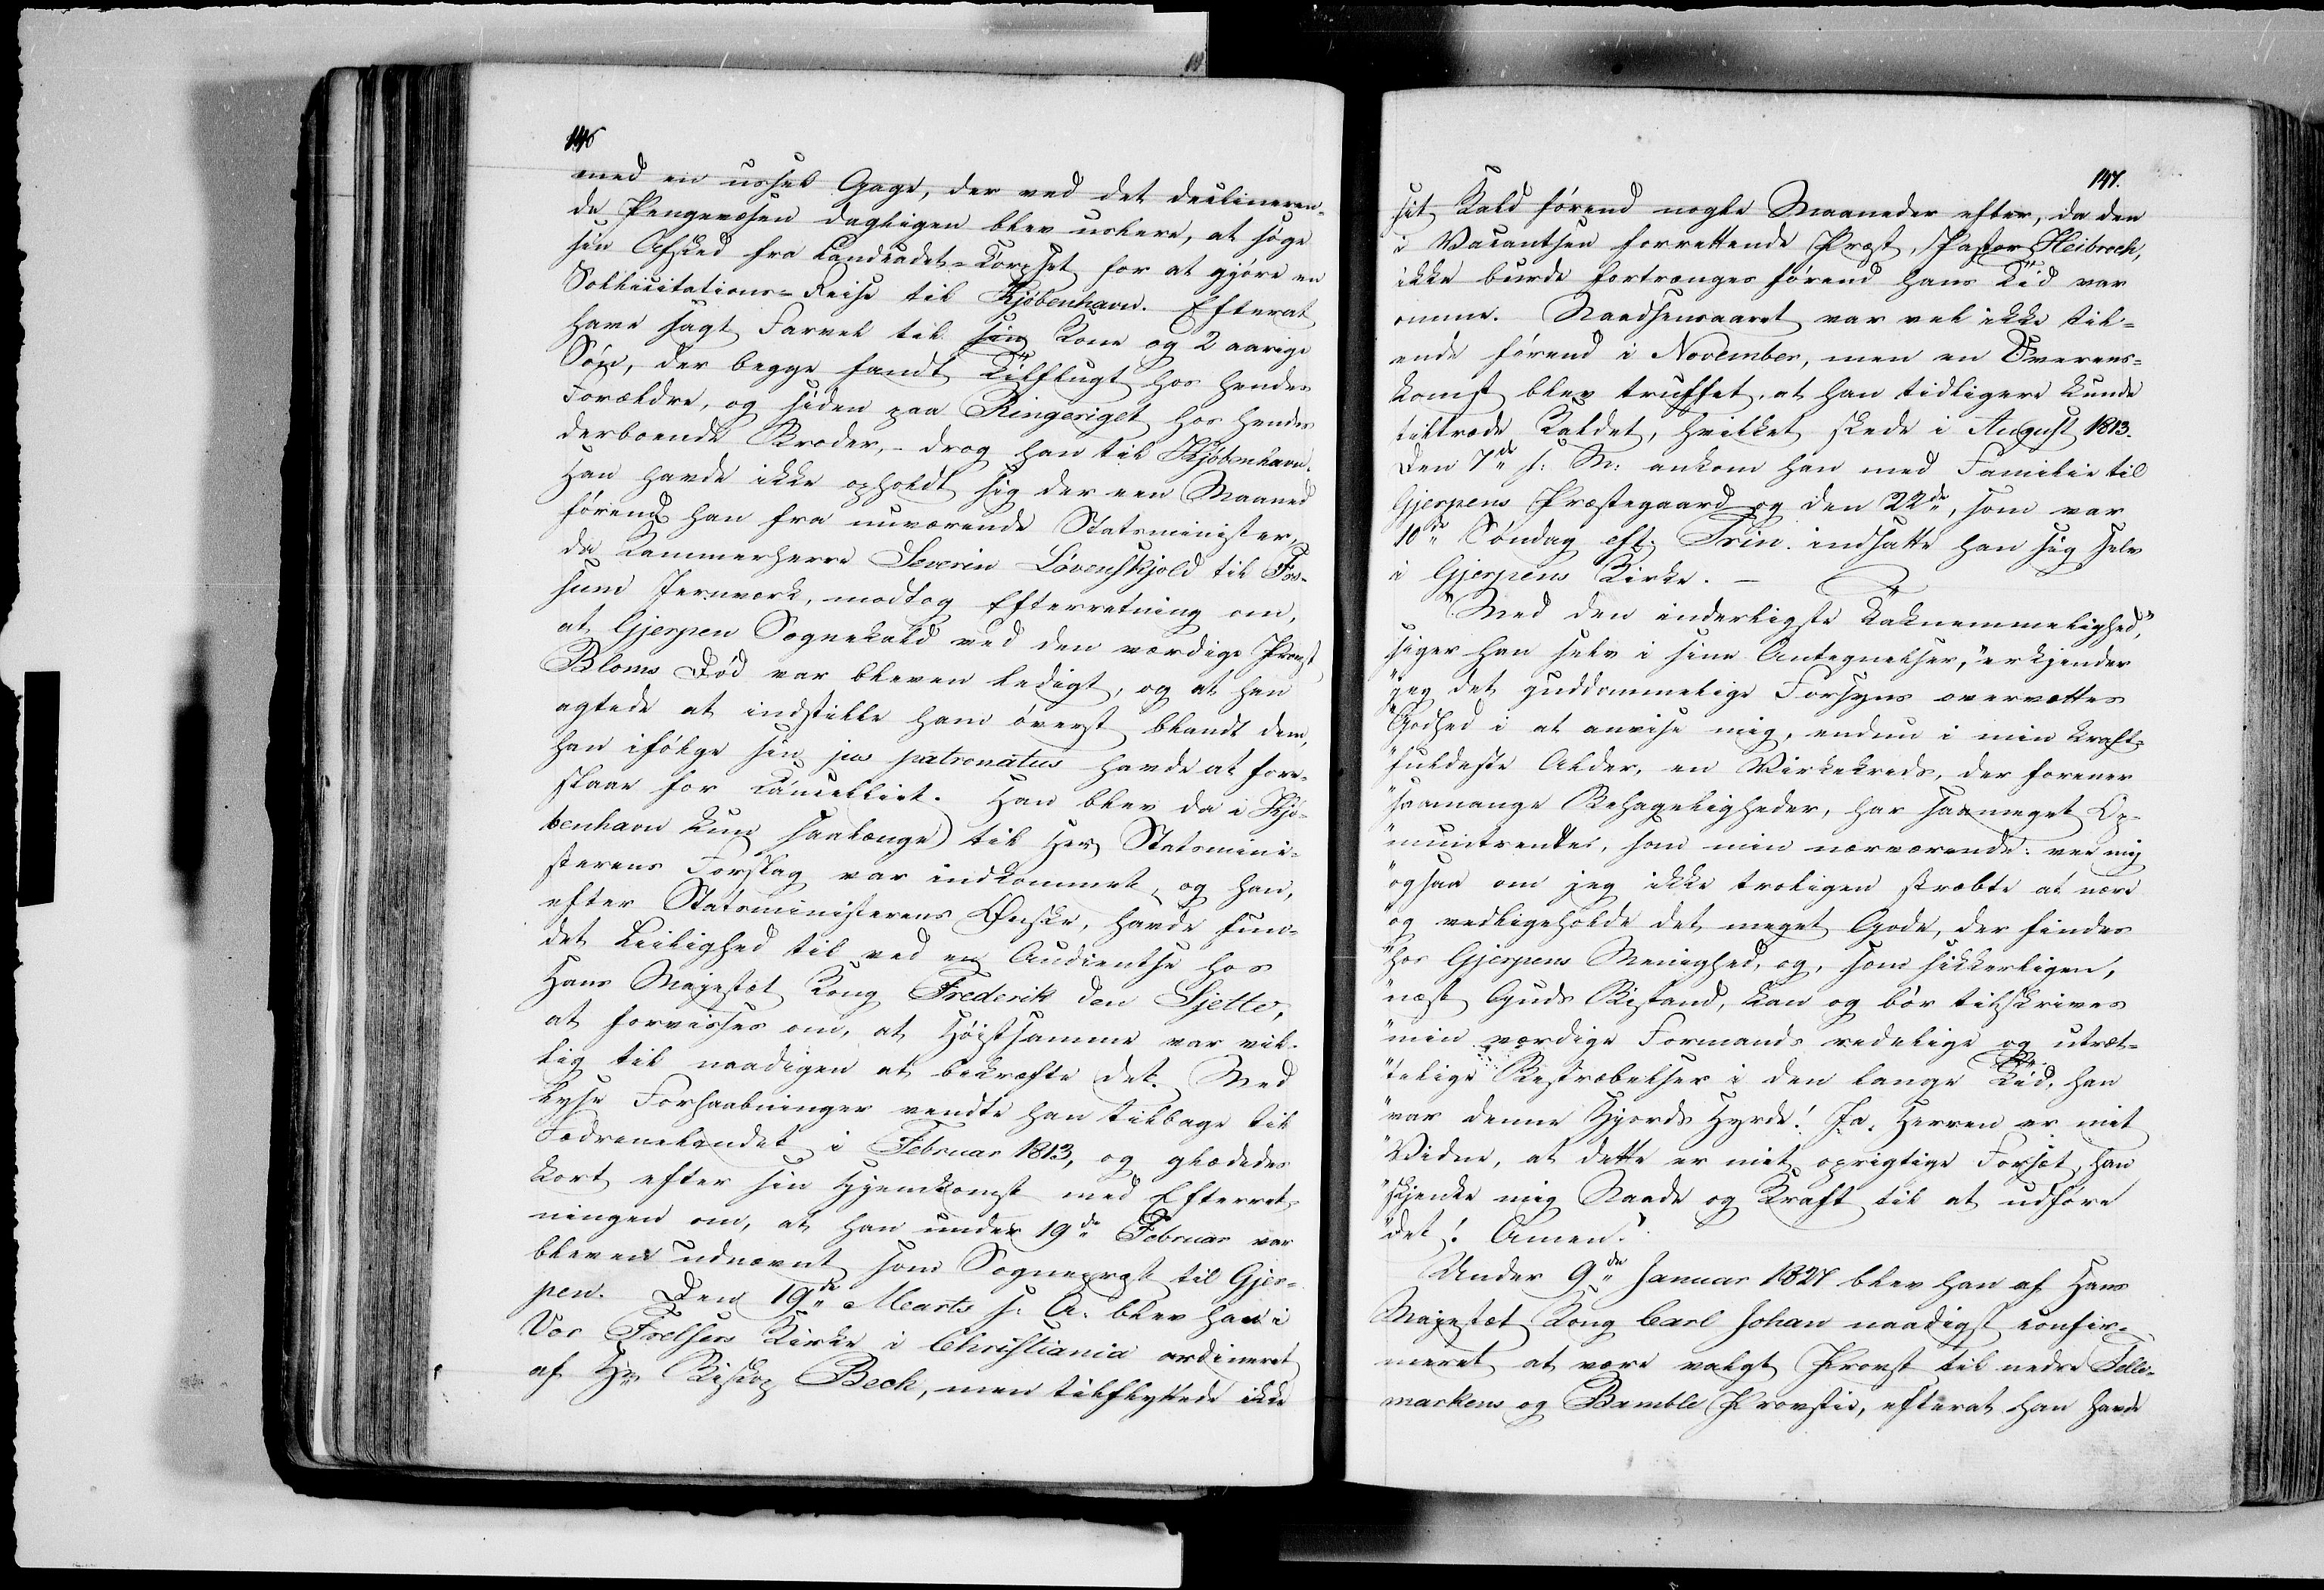 146
med en ussel Gage, der ved det declineren-
de Pengevæsen dagligen blev uslere, at søge
sin Afsked fra Landcadet-Corpset for at gjøre en
Sollicitations-Reise til Kjøbenhavn. Efterat
have sagt Farvel til sin Kone og 2 aarige
Søn, der begge fandt Tilflugt hos hendes
Forældre, og siden paa Ringeriget hos hendes
derboende Broder, - drog han til Kjøbenhavn.
Han havde ikke opholdt sig der een Maaned
førend han fra nuværende Statsminister,
da Kammerherre Severin Løvenskjold til Fos-
sum Jernværk, modtog Efterretning om,
at Gjerpen Sognekald ved den værdige Provst
Bloms Død var bleven ledigt, og at han
agtede at indstille ham øverst blandt dem,
han ifølge sin jus patronatus havde at fore-
slaae for Cancelliet. Han blev da i Kjø-
benhavn kun saalænge til Hr Statsmini-
sterens Forslag var indkommet, og han,
efter Statsministerens Ønske, havde fun-
det Leilighed til ved en Audientse hos
Hans Majestæt Kong Frederik den Sjette,
at forvisses om, at Høistsamme var vil-
lig til naadigen at bekræfte det. Med
lyse Forhaabninger vendte han tilbage til
Fædrenelandet i Februar 1813, og glædedes
kort efter sin Hjemkomst med Efterret-
ningen om, at han under 19de Februar var
bleven udnævnt som Sognepræst til Gjer-
pen. Den 19de Marts s. A. blev han i
Vor Frelsers Kirke i Christiania ordineret
af Hr Biskop Bech, men tilflyttede ikke
147.
sit Kald førend nogle Maaneder efter, da den
i Vacantsen forrettende Præst, Pastor Heibroch,
ikke burde fortrænges førend hans Tid var
omme. Naadsensaaret var vel ikke til-
ende førend i November, men en Overens-
komst blev truffet, at han tidligere kunde
tiltræde Kaldet, hvilket skede i August 1813.
Den 7de s. M. ankom han med Familie til
Gjerpens Præstegaard og den 22de, som var
10de Søndag eft. Trin. indsatte han sig selv
i Gjerpens Kirke. -
"Med den inderligste Taknemmelighed,"
siger han selv i sine Antegnelser, "erkjender
"jeg det guddommelige Forsyns overvættes
"Godhed i at anvise mig, endnu i min kraft-
"fuldeste Alder, en Virkekreds, der forener
"saamange Behageligheder, har saameget Op-
"muntrende, som min nærværende: vee mig
"ogsaa om jeg ikke troligen stræbte at nære
"og vedligeholde det meget Gode, der findes
"hos Gjerpens Menighed, og, som sikkerligen,
"næst Guds Bistand, kan og bør tilskrives
"min værdige Formands redelige og utræt-
"telige Bestræbelser i den lange Tid, han
"var denne Hjords Hyrde! Ja, Herren er mit
"Vidne, at dette er mit oprigtige Forsæt, han
"skjenke mig Naade og Kraft til at udføre
"det! Amen."
Under 9de Januar 1827 blev han af Hans
Majestæt Kong Carl Johan naadigst confir-
meret at være valgt Provst til nedre Telle-
markens og Bamble Provstie, efterat han havde